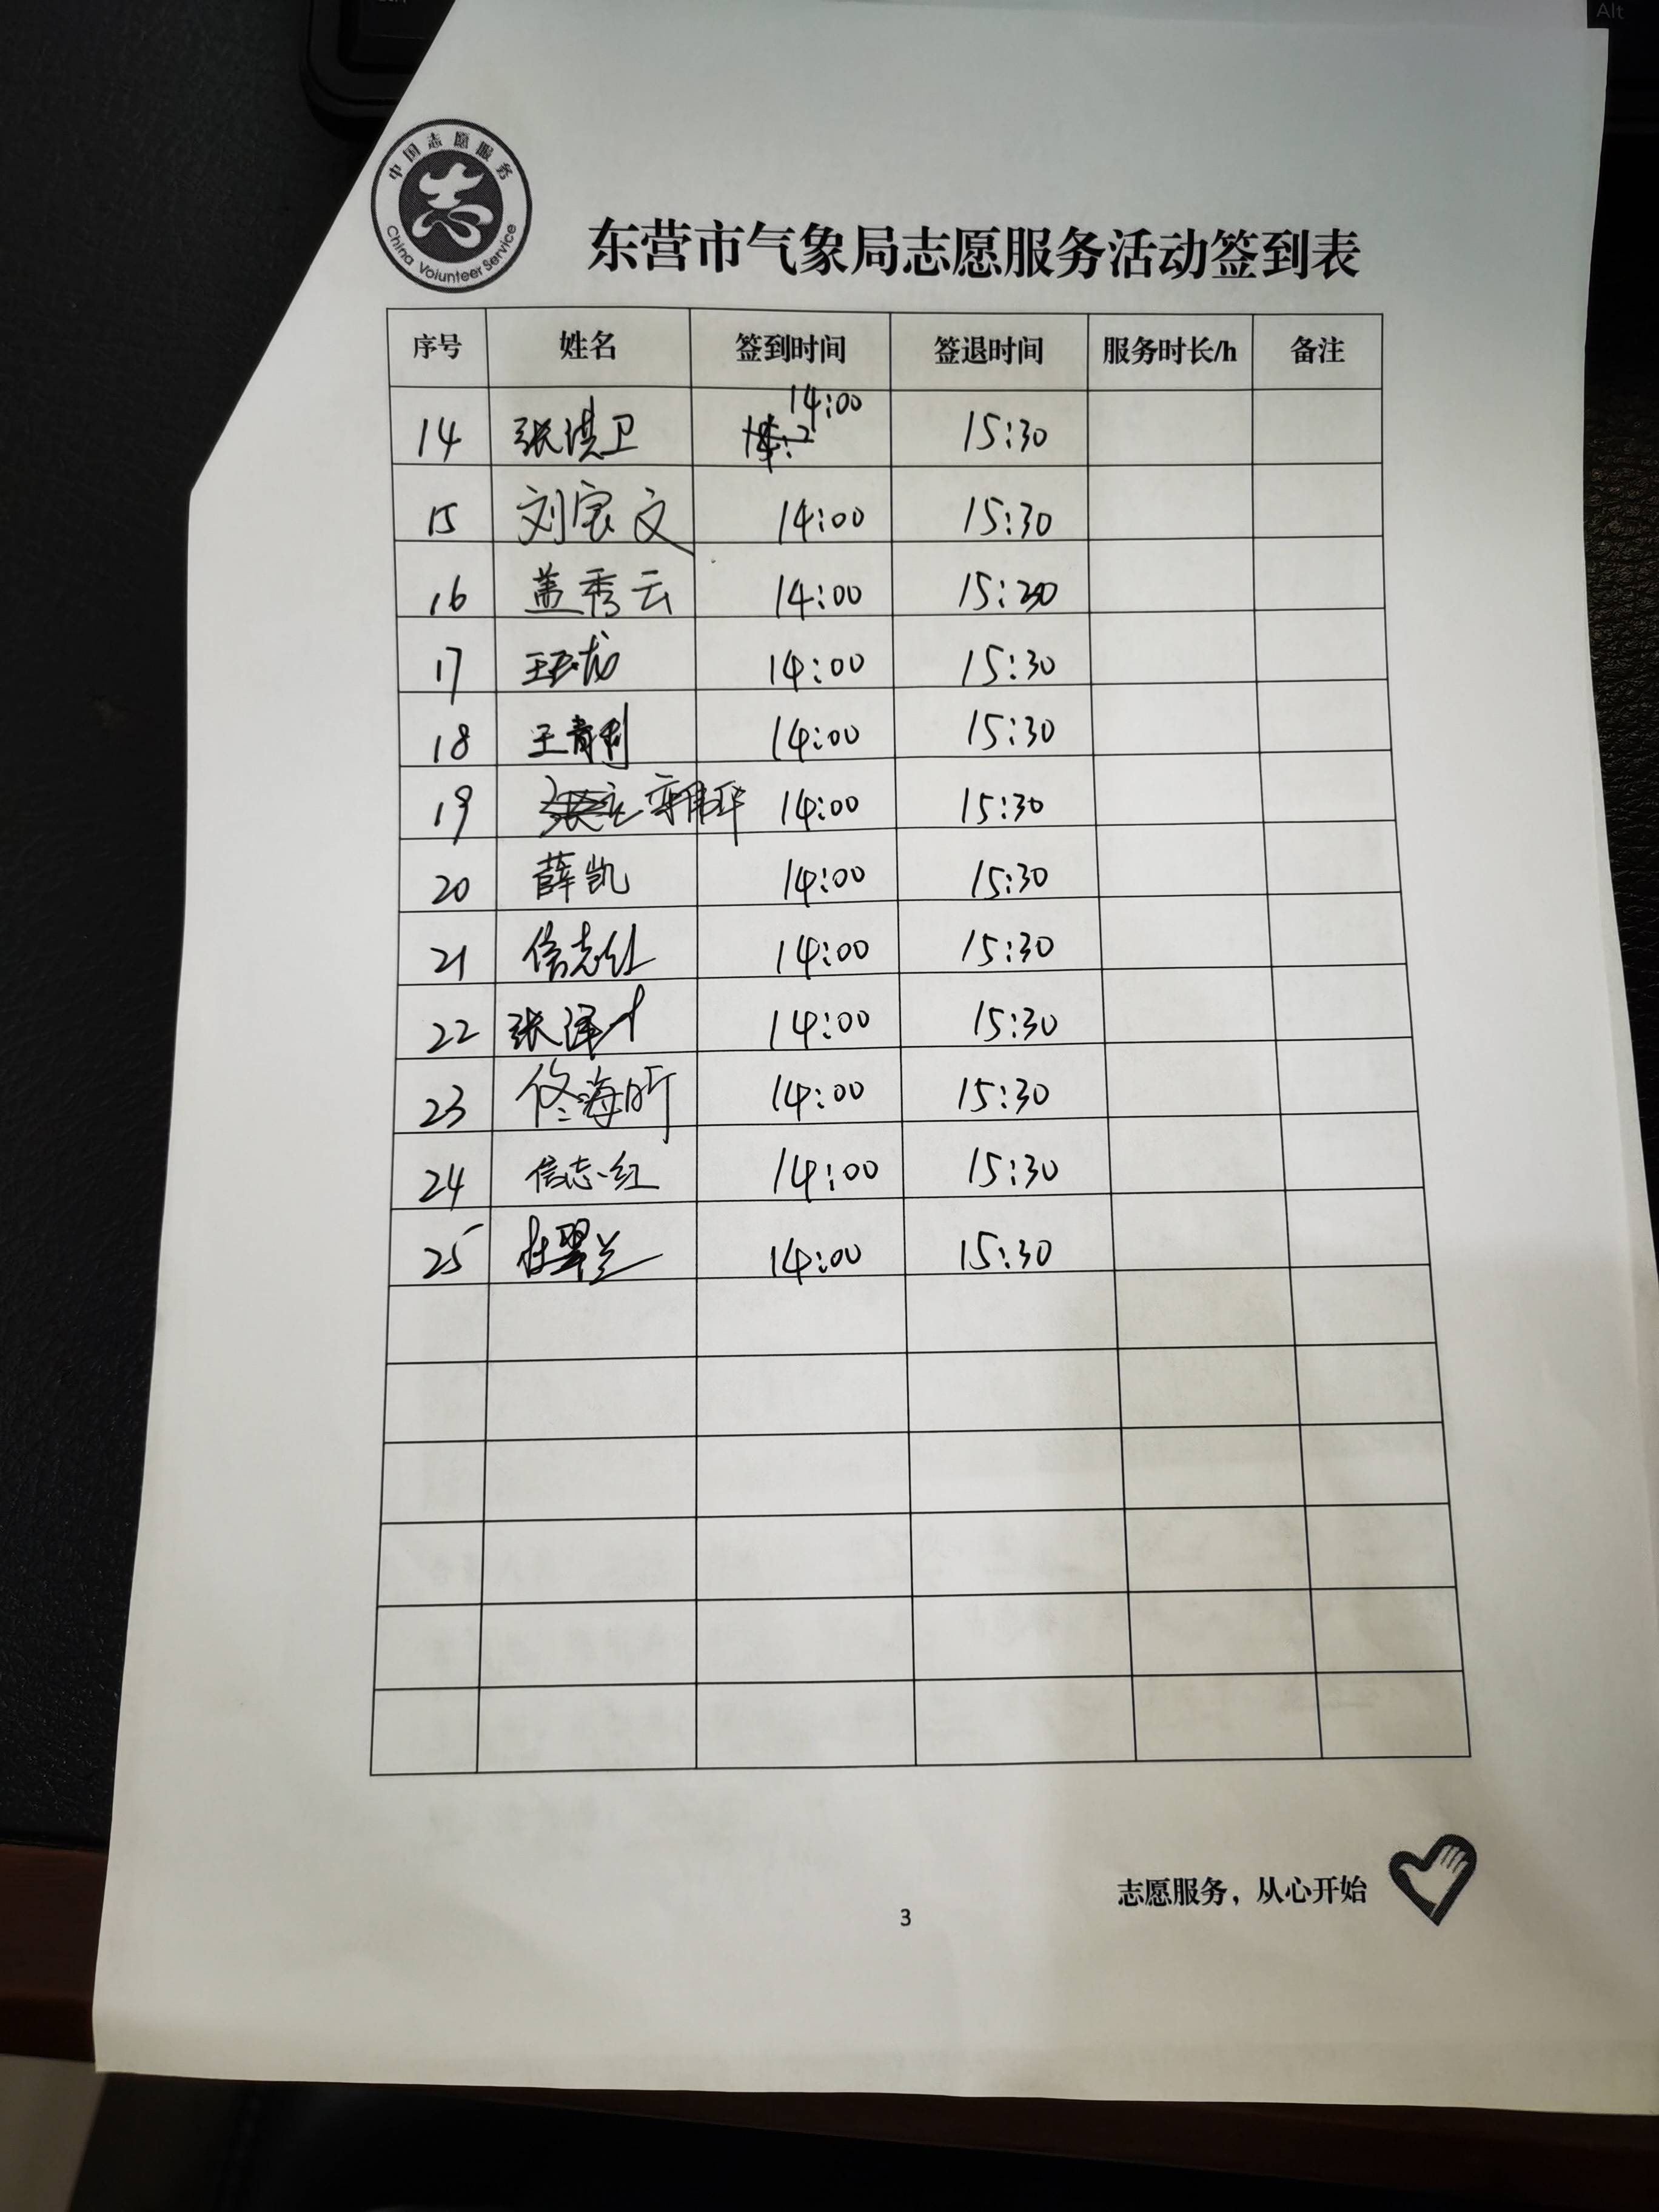 Alt
中国志愿服务
China Volunteer Service
东营市气象局志愿服务活动签到表
序号 姓名 签到时间 签退时间 服务时长/h 备注
14 张淇卫 14:00 15:30
15 刘宗文 14:00 15:30
16 盖秀云 14:00 15:30
17 王延龙 14:00 15:30
18 王青利 14:00 15:30
19 14:00 15:30
20 薛凯 14:00 15:30
21 信志红 14:00 15:30
22 张泽 14:00 15:30
23 佟海昕 14:00 15:30
24 信志红 14:00 15:30
25 杜翠兰 14:00 15:30
志愿服务，从心开始
3